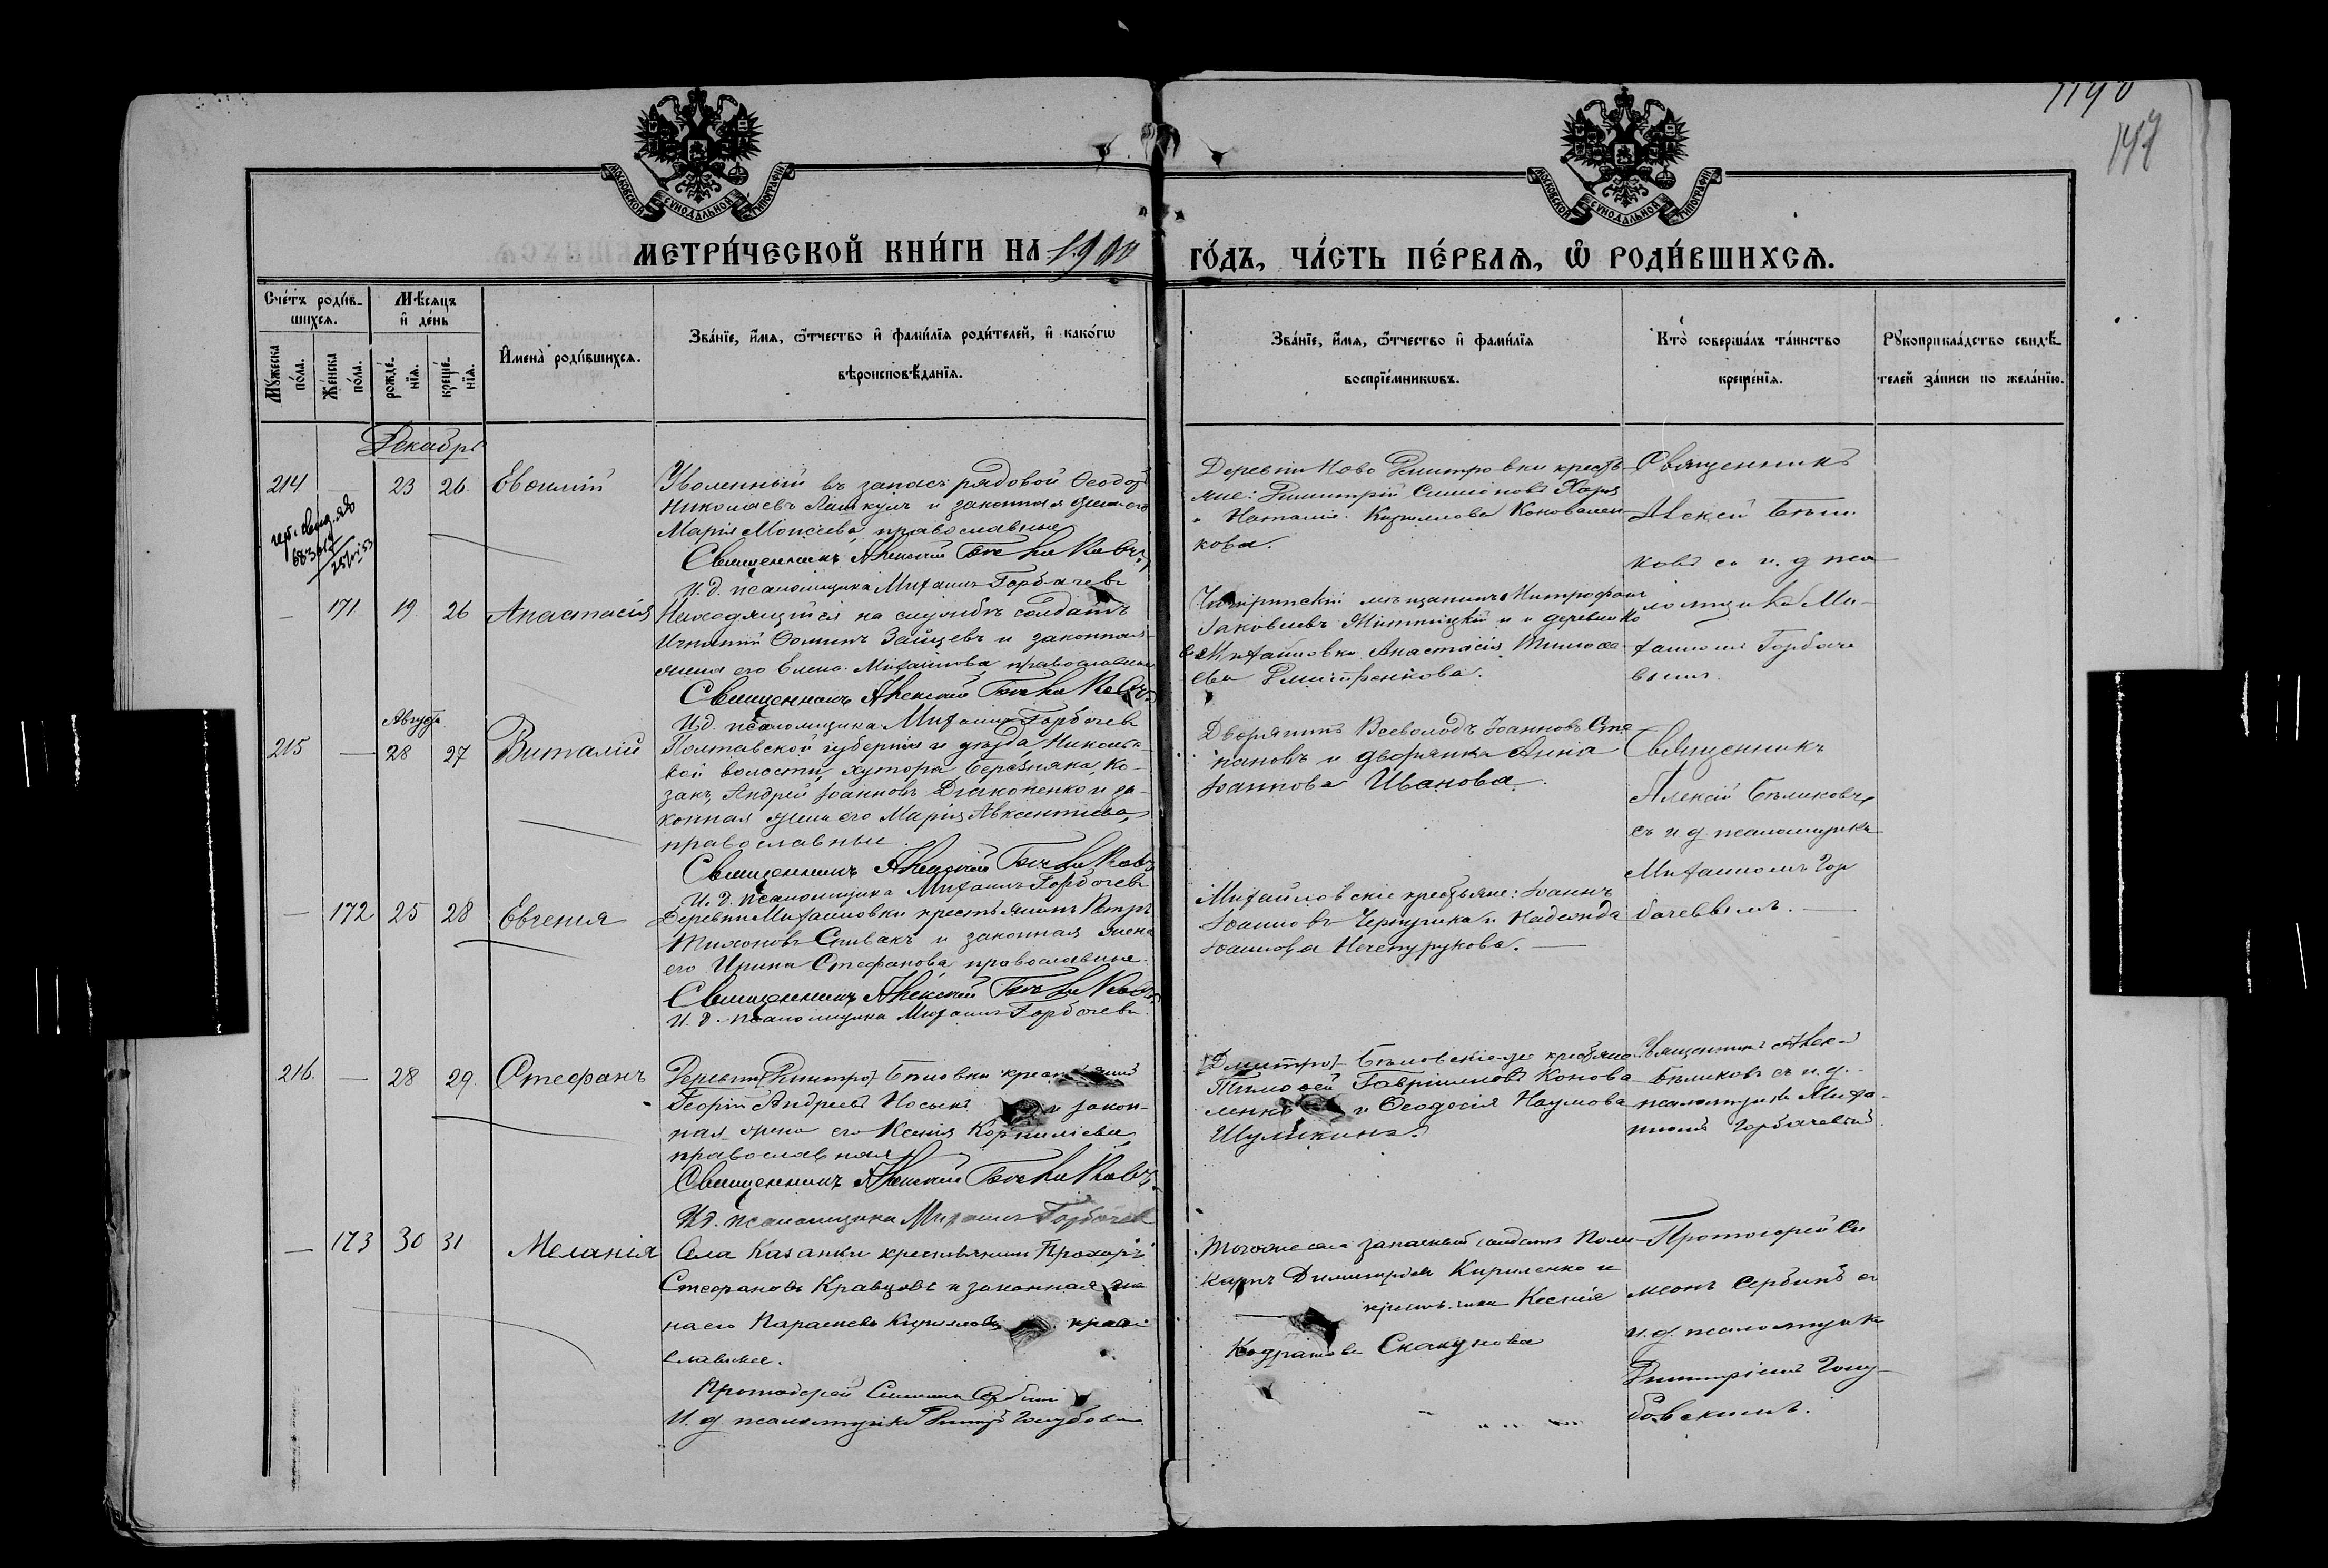 1190
149
МОСКОВСКОЙ СѴНОДАЛЬНОЙ ТИПОГРАФІИ
МОСКОВСКОЙ СѴНОДАЛЬНОЙ ТИПОГРАФІИ
МЕТРИ́ЧЕСКОЙ КНИ́ГИ НА 1900
ГО́ДЪ, ЧА́СТЬ ПЕ́РВАѦ, Ѡ҆ РОДИ́ВШИХСѦ.
Сче́тъ роди́в-
шихсѧ.
Мꙋ́жеска по́ла.
Же́нска по́ла.
Мѣ́сѧцъ
и҆ де́нь
рожде́-нїѧ.
креще́-нїѧ.
И҆мена̀ роди́вшихсѧ.
Зва́нїе, и҆́мѧ, ѻ҆́тчество и҆ фами́лїѧ роди́телей, и҆ како́гѡ
вѣроисповѣ́данїѧ.
Зва́нїе, и҆́мѧ, ѻ҆́тчество и҆ фами́лїѧ
воспрїе́мникѡвъ.
Кто̀ соверша́лъ та́инство
креще́нїѧ.
Рꙋкоприкла́дство свидѣ́-
телей за́писи по жела́нїю.
Декабрь
214 — 23 26 Евѳимій
Уволенный въ запасъ рядовой Ѳеодоръ
Николаевъ и законная жена его
Марія Моисеева, православные
Священникъ Алексій Бѣликовъ
И. д. псаломщика Михаилъ Горбачевъ
Деревни Ново Димитровки крестья-
не: Димитрій Симеоновъ
и Наталія Кириллова Коновален-
кова.
Священникъ
Алексій Бѣли-
ковъ съ и. д. пса-
ломщика Ми-
хаиломъ Горбаче-
вымъ.
— 171 19 26 Анастасія
Находящійся на службѣ солдатъ
Игнатій Ѳоминъ Зайцевъ и законная
жена его Елена Михайлова, православные
Священникъ Алексій Бѣликовъ
И. д. псаломщика Михаилъ Горбачевъ
мѣщанинъ Митрофанъ
Іаковлевъ и деревни Но-
во Михайловки Анастасія Тимоѳе-
ева Дмитренкова.
Августа
215 — 28 27 Виталій
Полтавской губерніи и уѣзда, Николь-
ской волости, хутора Березняка, ко-
закъ, Андрей Іоанновъ Дьяконенко и за-
конная жена его Марія Авксентіева,
православные.
Священникъ Алексій Бѣликовъ
И. д. псаломщика Михаилъ Горбачевъ
Дворянинъ Всеволодъ Іоанновъ Сте-
пановъ и дворянка Анна
Іоаннова Иванова.
Священникъ
Алексій Бѣликовъ
съ и. д. псаломщика
Михаиломъ Гор-
бачевымъ.
— 172 25 28 Евгенія
Деревни Михайловки крестьянинъ Петръ
Тихоновъ Спивакъ и законная жена
его Ирина Стефанова, православные.
Священникъ Алексій Бѣликовъ
И. д. псаломщика Михаилъ Горбачевъ
Михайловскіе крестьяне: Іоаннъ
Іоанновъ и Надежда
Іоаннова Нечепурукова.
216. — 28 29. Стефанъ
Деревни Дмитро-Бѣловки
Георгій Андреевъ Носыкъ и закон-
ная жена его Ксенія Корниліева,
православная
Священникъ Алексій Бѣликовъ
И. д. псаломщика Михаилъ Горбачевъ
Дмитро-Бѣловскіе-же крестьяне
Тимоѳей Гавріиловъ Конова-
ленко и Ѳеодосія Наумова
Шуликина.
Священникъ Алек-
Бѣликовъ съ и. д.
псаломщика Миха-
иломъ Горбачевымъ
— 173 30 31 Меланія
Села Казанки крестьянинъ Прохоръ
Стефановъ Кравцовъ и законная же-
на его Параскева Кириллова право-
славные.
Протоіерей Симеонъ Сербинъ
И. д. псаломщика
Тогоже села запасный солдатъ Поли-
карпъ Димитріевъ Кириленко и
Ксенія
Кодратова Скакунова
Протоіерей Си-
меонъ Сербинъ съ
и. д. псаломщика
Димитріемъ Голу-
бовскимъ.